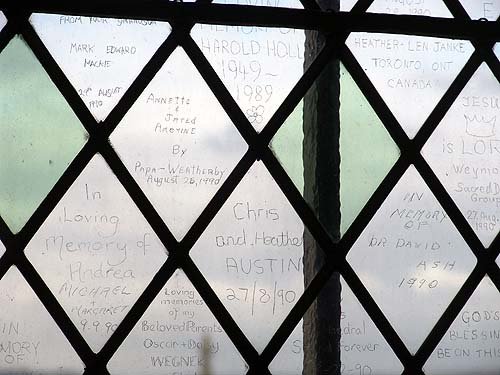 FROM YOUR GRANDSON
MARK EDWARD
MACKIE
21st AUGUST
1990
HAROLD HOLL
1949~
1989
1990
HEATHER-LEN-JANKE
TORONTO, ONT
CANADA
Annette
&
Jared
By
Papa-Weatherby
August 28, 1990
JESUS
is LORD
Weymo
Sacred
Group
27 Aug
1990
In
Loving
Memory of
Andrea
MICHAEL
+
MARGARET
9.9.90
Chris
and Heather
AUSTIN
27/8/90
IN
MEMORY
OF
DR DAVID
ASH
1990
IN
MORY
OF
Loving
memories
of my
Beloved Parents
Oscar + Daisy
WEGNE
dral
orever
-90
GOD'S
BLESSIN
BE ON THIS